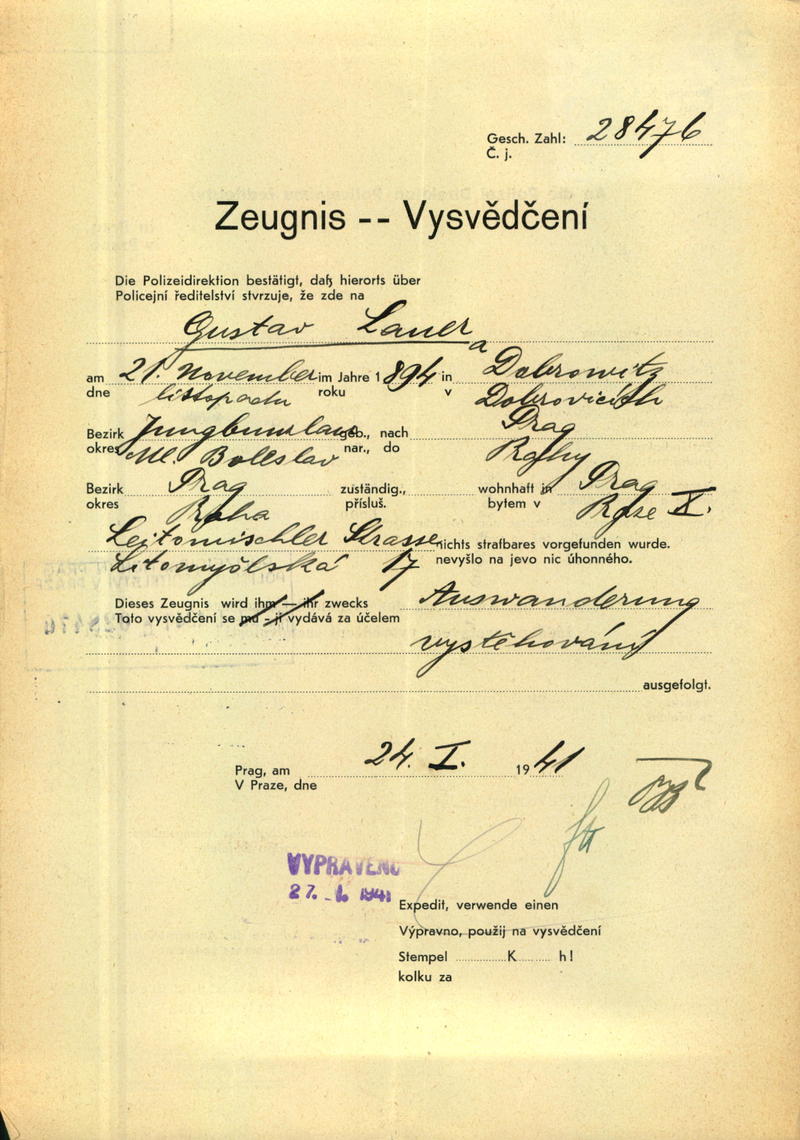 Gesch. Zahl: 28476
Č. j.
Zeugnis -- Vysvědčení
Die Polizeidirektion bestätigt, daß hierorts über
Policejní ředitelství stvrzuje, že zde na
Gustav Lauer
am 21. November im Jahre 1894 in Dobrowitz
dne listopadu roku v Dobrovicích
Bezirk Jungbunzlau geb., nach Prag
okres Ml. Boleslav nar., do Prahy
Bezirk Prag zuständig., wohnhaft in Prag
okres Praha přísluš. bytem v Praze X.
Leitomischler Strasse nichts strafbares vorgefunden wurde.
Litomyšlská 17 nevyšlo na jevo nic úhonného.
Dieses Zeugnis wird ihm — ihr zwecks Auswanderung
Toto vysvědčení se mu - jí vydává za účelem
vystěhování
ausgefolgt.
Prag, am 24. I. 1941
V Praze, dne
VYPRAVENO
27. 1941
Expedit, verwende einen
Výpravno, použij na vysvědčení
Stempel K h!
kolku za